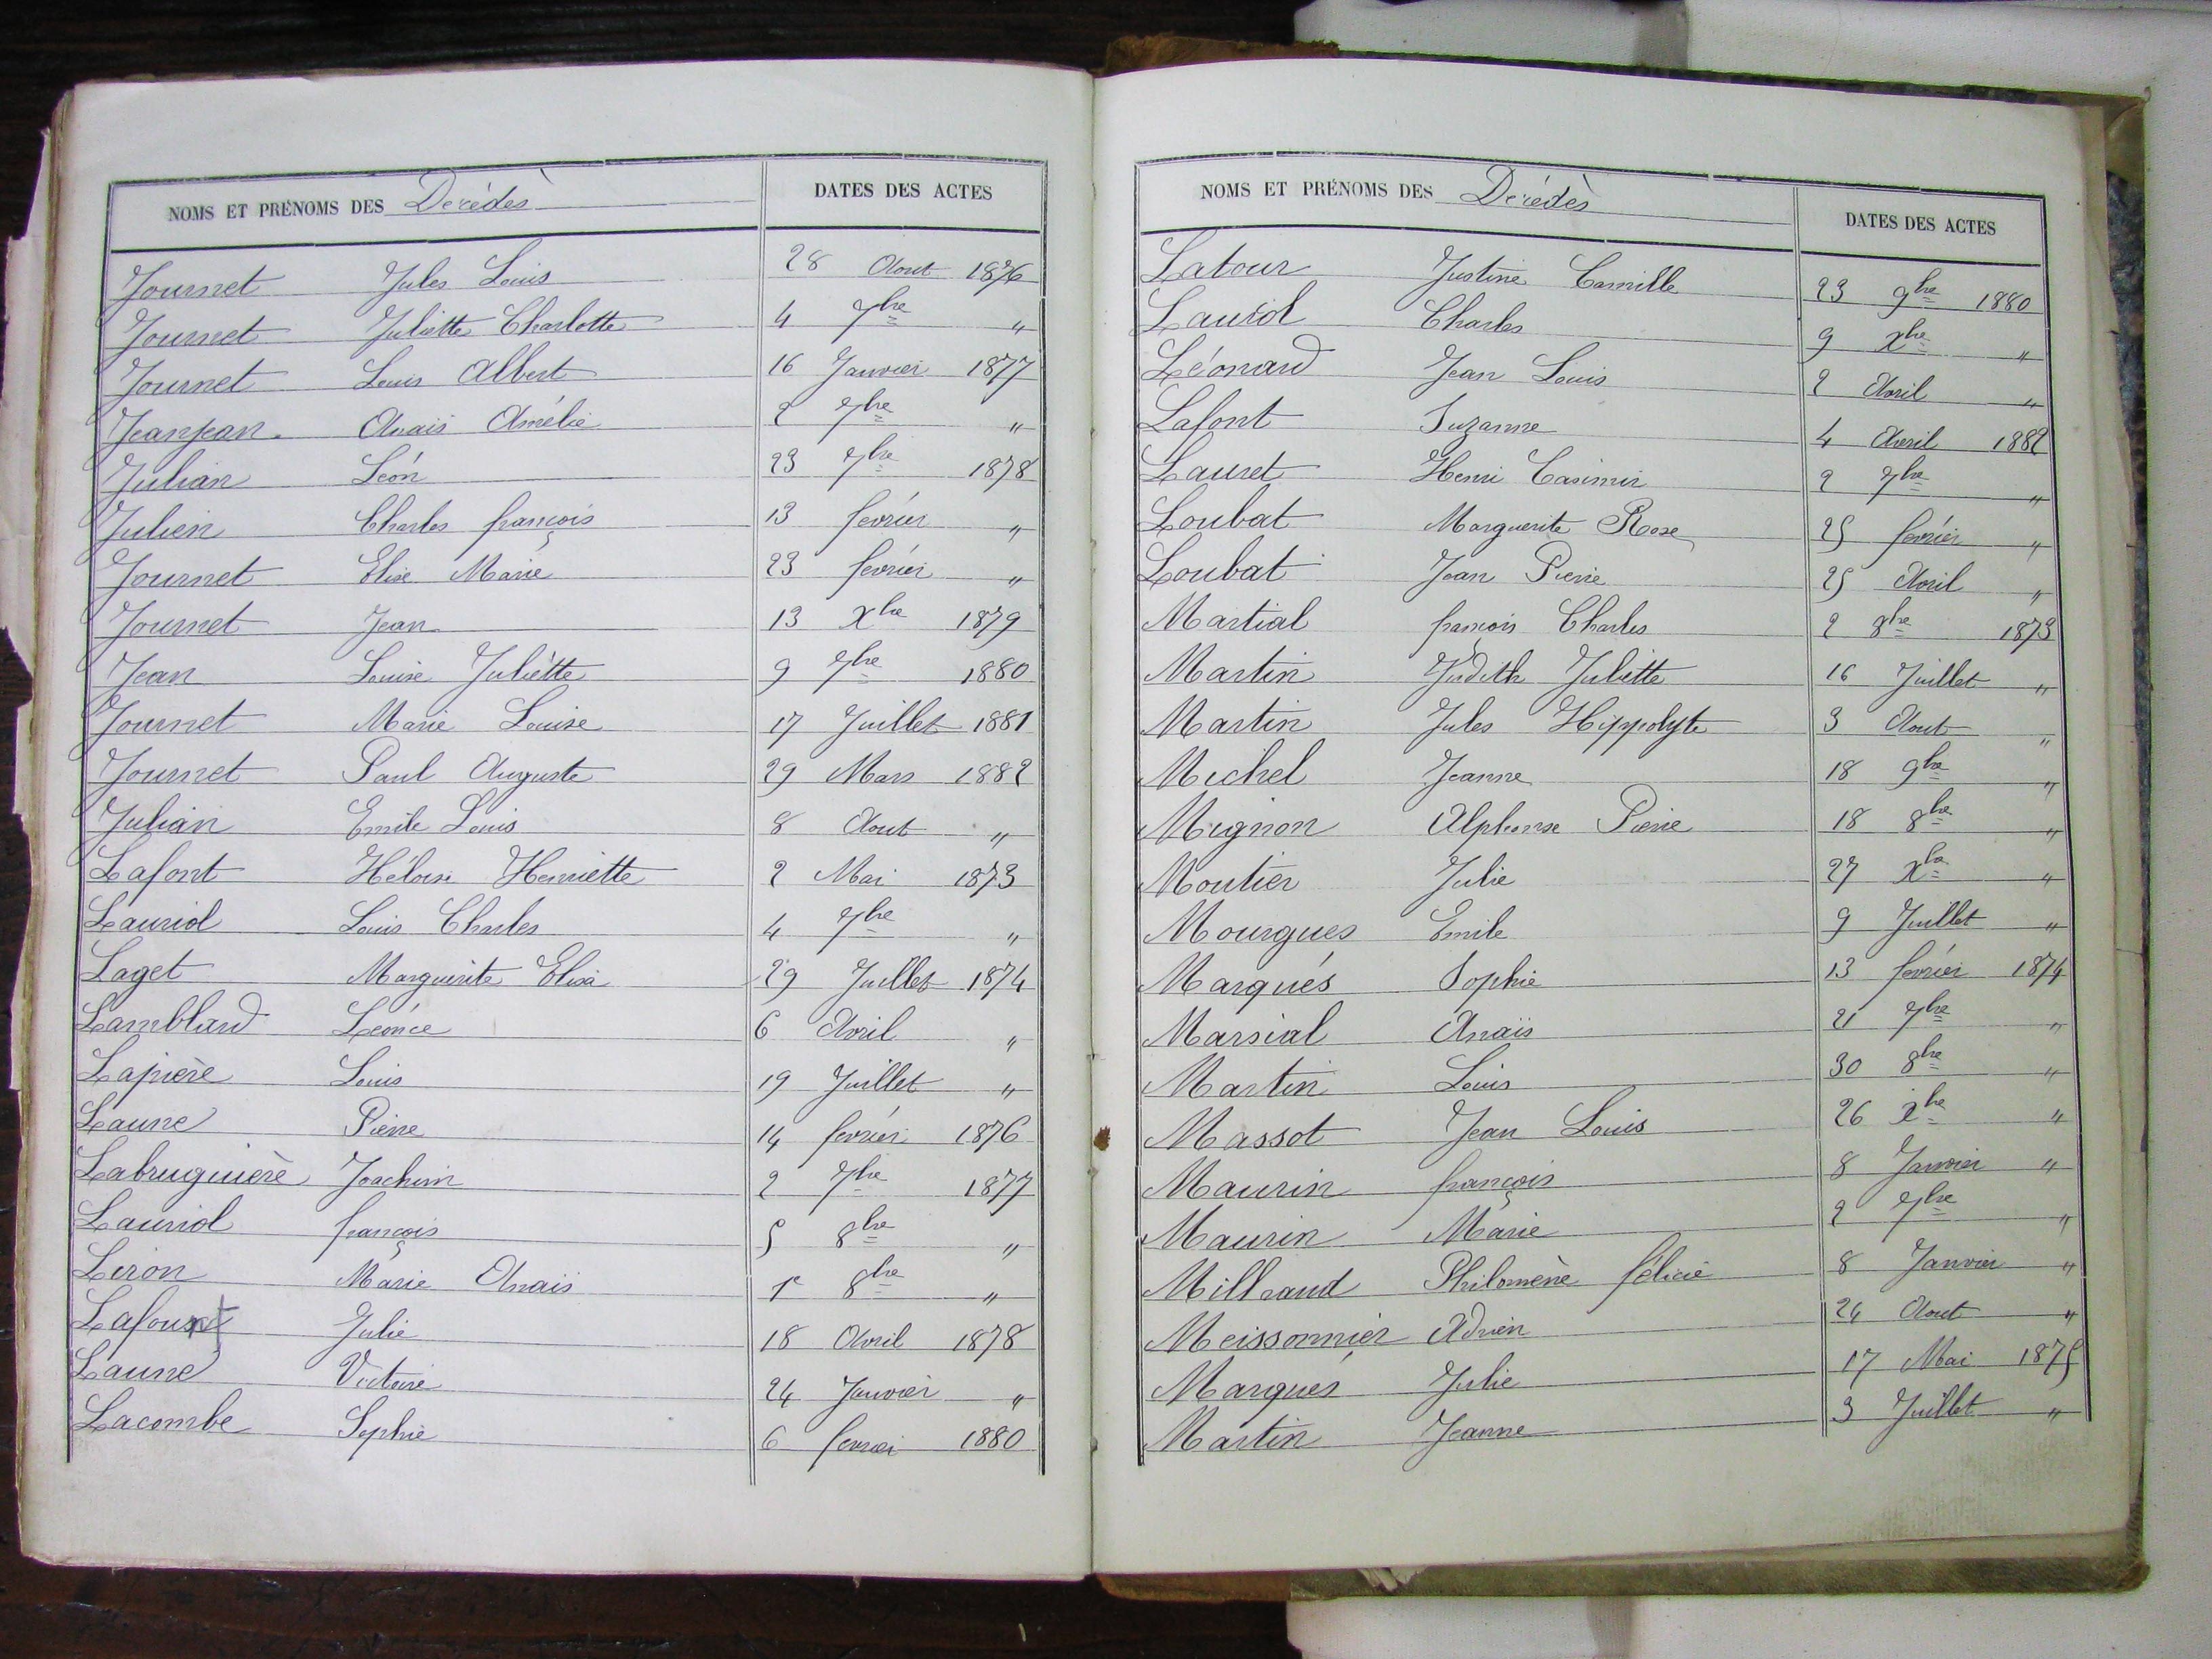 NOMS ET PRÉNOMS DES Décédés DATES DES ACTES
Journet Jules Louis 28 Aout 1876
Journet Juliette Charlotte 4 7bre "
Journet Louis Albert 16 Janvier 1877
Jeanjean Anais Amélie 2 7bre "
Julian Léon 23 7bre 1878
Julien Charles françois 13 fevrier "
Journet Elise Marie 23 fevrier "
Journet Jean 13 Xbre 1879
Jean Louise Juliette 9 7bre 1880
Journet Marie Louise 17 Juillet 1881
Journet Paul Auguste 29 Mars 1882
Julian Emile Louis 8 Aout "
Lafont Héloise Henriette 2 Mai 1873
Lauriol Louis Charles 4 7bre "
Laget Marguerite Elisa 29 Juillet 1874
Lamblard Léonce 6 Avril "
Lapière Louis 19 Juillet "
Laune Pierre 14 fevrier 1876
Labruguière Joachim 2 7bre 1877
Lauriol françois 5 8bre "
Liron Marie Anais 1r 8bre "
Lafont Julie 18 Avril 1878
Laune Victoire 24 Janvier "
Lacombe Sophie 6 fevrier 1880
NOMS ET PRÉNOMS DES Décédés DATES DES ACTES
Latour Justine Camille 23 9bre 1880
Lauriol Charles 9 Xbre "
Léonard Jean Louis 2 Avril "
Lafont Suzanne 4 Avril 1882
Lauret Henri Casimir 2 7bre "
Loubat Marguerite Rose 25 fevrier "
Loubat Jean Pierre 25 Avril "
Martial françois Charles 2 8bre 1873
Martin Judith Juliette 16 Juillet "
Martin Jules Hippolyte 3 Aout "
Michel Jeanne 18 9bre "
Mignon Alphonse Pierre 18 8bre "
Moutier Julie 27 Xbre "
Mourgues Emile 9 Juillet "
Marqués Sophie 13 fevrier 1874
Marsial Anaïs 21 7bre "
Martin Louis 30 8bre "
Massot Jean Louis 26 Xbre "
Maurin françois 8 Janvier "
Maurin Marie 2 7bre "
Millraud Philomène félicie 8 Janvier "
Meissonnier Adrien 24 Aout "
Marqués Julie 17 Mai 1875
Martin Jeanne 3 Juillet "